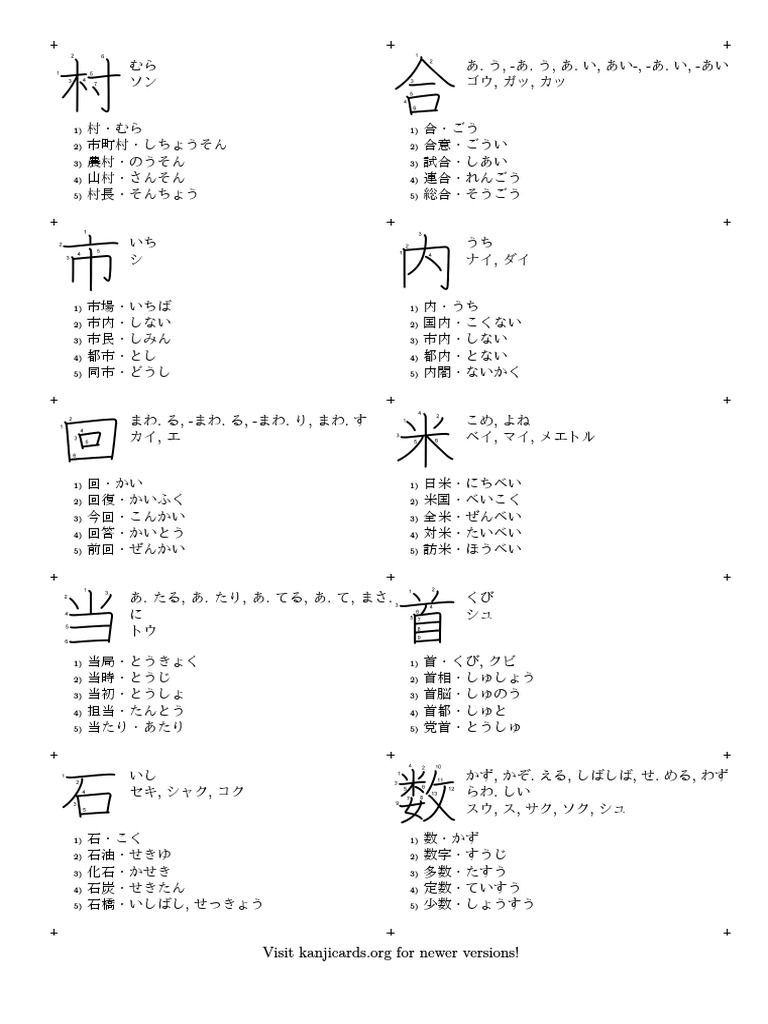 村
むら
ソン
1) 村・むら
2) 市町村・しちょうそん
3) 農村・のうそん
4) 山村・さんそん
5) 村長・そんちょう
合
あ. う, -あ. う, あ. い, あい-, -あ. い, -あい
ゴウ, ガッ, カッ
1) 合・ごう
2) 合意・ごうい
3) 試合・しあい
4) 連合・れんごう
5) 総合・そうごう
市
いち
シ
1) 市場・いちば
2) 市内・しない
3) 市民・しみん
4) 都市・とし
5) 同市・どうし
内
うち
ナイ, ダイ
1) 内・うち
2) 国内・こくない
3) 市内・しない
4) 都内・とない
5) 内閣・ないかく
回
まわ. る, -まわ. る, -まわ. り, まわ. す
カイ, エ
1) 回・かい
2) 回復・かいふく
3) 今回・こんかい
4) 回答・かいとう
5) 前回・ぜんかい
米
こめ, よね
ベイ, マイ, メエトル
1) 日米・にちべい
2) 米国・べいこく
3) 全米・ぜんべい
4) 対米・たいべい
5) 訪米・ほうべい
当
あ. たる, あ. たり, あ. てる, あ. て, まさ.
に
トウ
1) 当局・とうきょく
2) 当時・とうじ
3) 当初・とうしょ
4) 担当・たんとう
5) 当たり・あたり
首
くび
シュ
1) 首・くび, クビ
2) 首相・しゅしょう
3) 首脳・しゅのう
4) 首都・しゅと
5) 党首・とうしゅ
石
いし
セキ, シャク, コク
1) 石・こく
2) 石油・せきゆ
3) 化石・かせき
4) 石炭・せきたん
5) 石橋・いしばし, せっきょう
数
かず, かぞ. える, しばしば, せ. める, わず
らわ. しい
スウ, ス, サク, ソク, シュ
1) 数・かず
2) 数字・すうじ
3) 多数・たすう
4) 定数・ていすう
5) 少数・しょうすう
Visit kanjicards.org for newer versions!